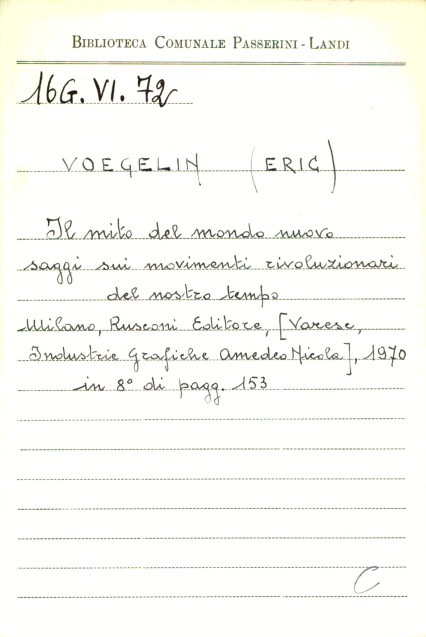 BIBLIOTECA COMUNALE PASSERINI - LANDI
16G. VI. 72
VOEGELIN (ERIC)
Il mito del mondo nuovo
saggi sui movimenti rivoluzionari
del nostro tempo
Milano, Rusconi Editore, [Varese,
Industrie Grafiche Amedeo Nicola], 1970
in 8° di pagg. 153
C